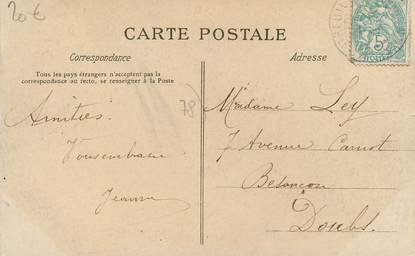 20€
CARTE POSTALE
Correspondance
Adresse
Tous les pays étrangers n'acceptent pas la
correspondance au recto, se renseigner à la Poste
78
5
Amitiés
Madame Ley
7 Avenue Carnot
Besançon
Doubs
Jeanne